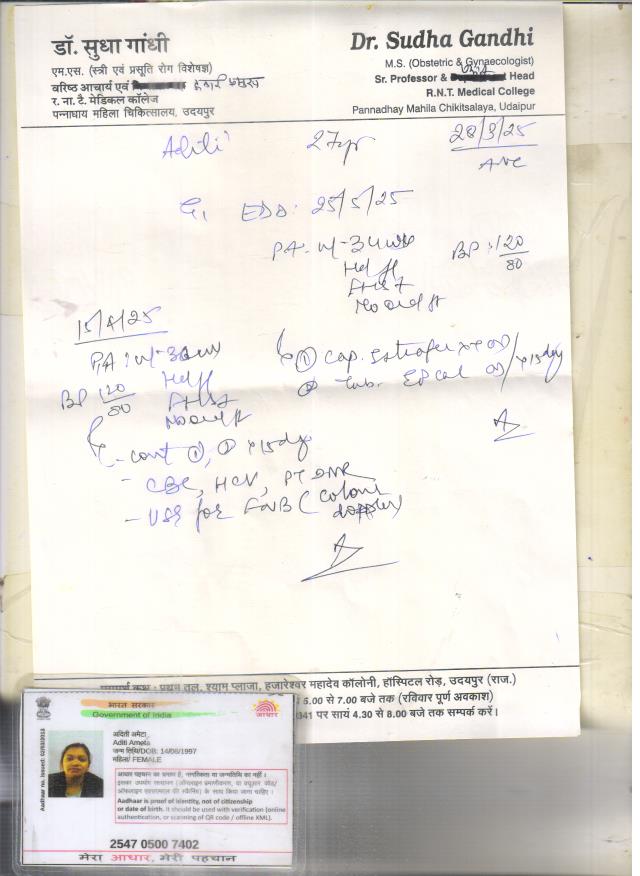 डॉ. सुधा गांधी
एम.एस. (स्त्री एवं प्रसूति रोग विशेषज्ञ)
वरिष्ठ आचार्य एवं
र. ना. टै. मेडिकल कॉलेज
पन्नाधाय महिला चिकित्सालय, उदयपुर
Dr. Sudha Gandhi
M.S. (Obstetric & Gynaecologist)
Sr. Professor & Head
R.N.T. Medical College
Pannadhay Mahila Chikitsalaya, Udaipur
Aditi 27yr 28/3/25
ANC
G1 EDD: 25/5/25
PA: ut-34wk BP: 120/80
FHS+
15/4/25
PA: ut-36wk
BP 120/80
FHS+
① Cap.
② Tab. x15day
- cont ①, ② x15dy
- CBC, HCV, PT INR
- USG for (Colour doppler)
प्रथम तल, श्याम प्लाजा, हजारेश्वर महादेव कॉलोनी, हॉस्पिटल रोड़, उदयपुर (राज.)
5.00 से 7.00 बजे तक (रविवार पूर्ण अवकाश)
341 पर सायं 4.30 से 8.00 बजे तक सम्पर्क करें।
भारत सरकार
Government of India
आधार
अदिती अमेटा
Aditi Ameta
जन्म तिथि/DOB: 14/08/1997
महिला/ FEMALE
आधार पहचान का प्रमाण है, नागरिकता या जन्मतिथि का नहीं।
Aadhaar is proof of identity, not of citizenship
or date of birth. It should be used with verification (online
authentication, or scanning of QR code / offline XML).
2547 0500 7402
मेरा आधार, मेरी पहचान